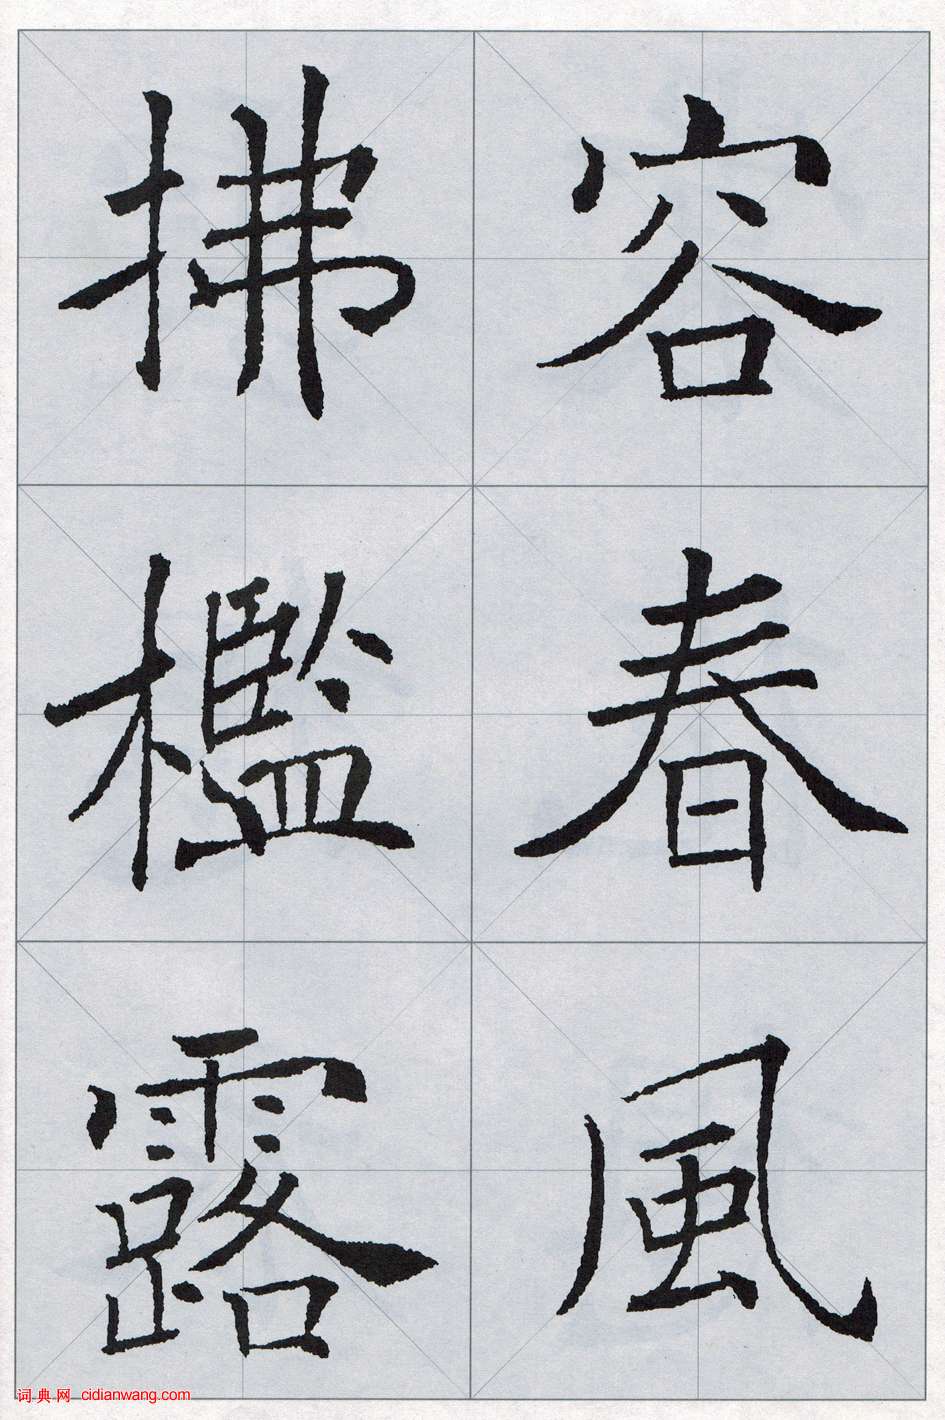 容春風
拂檻露
词典网 cidianwang.com